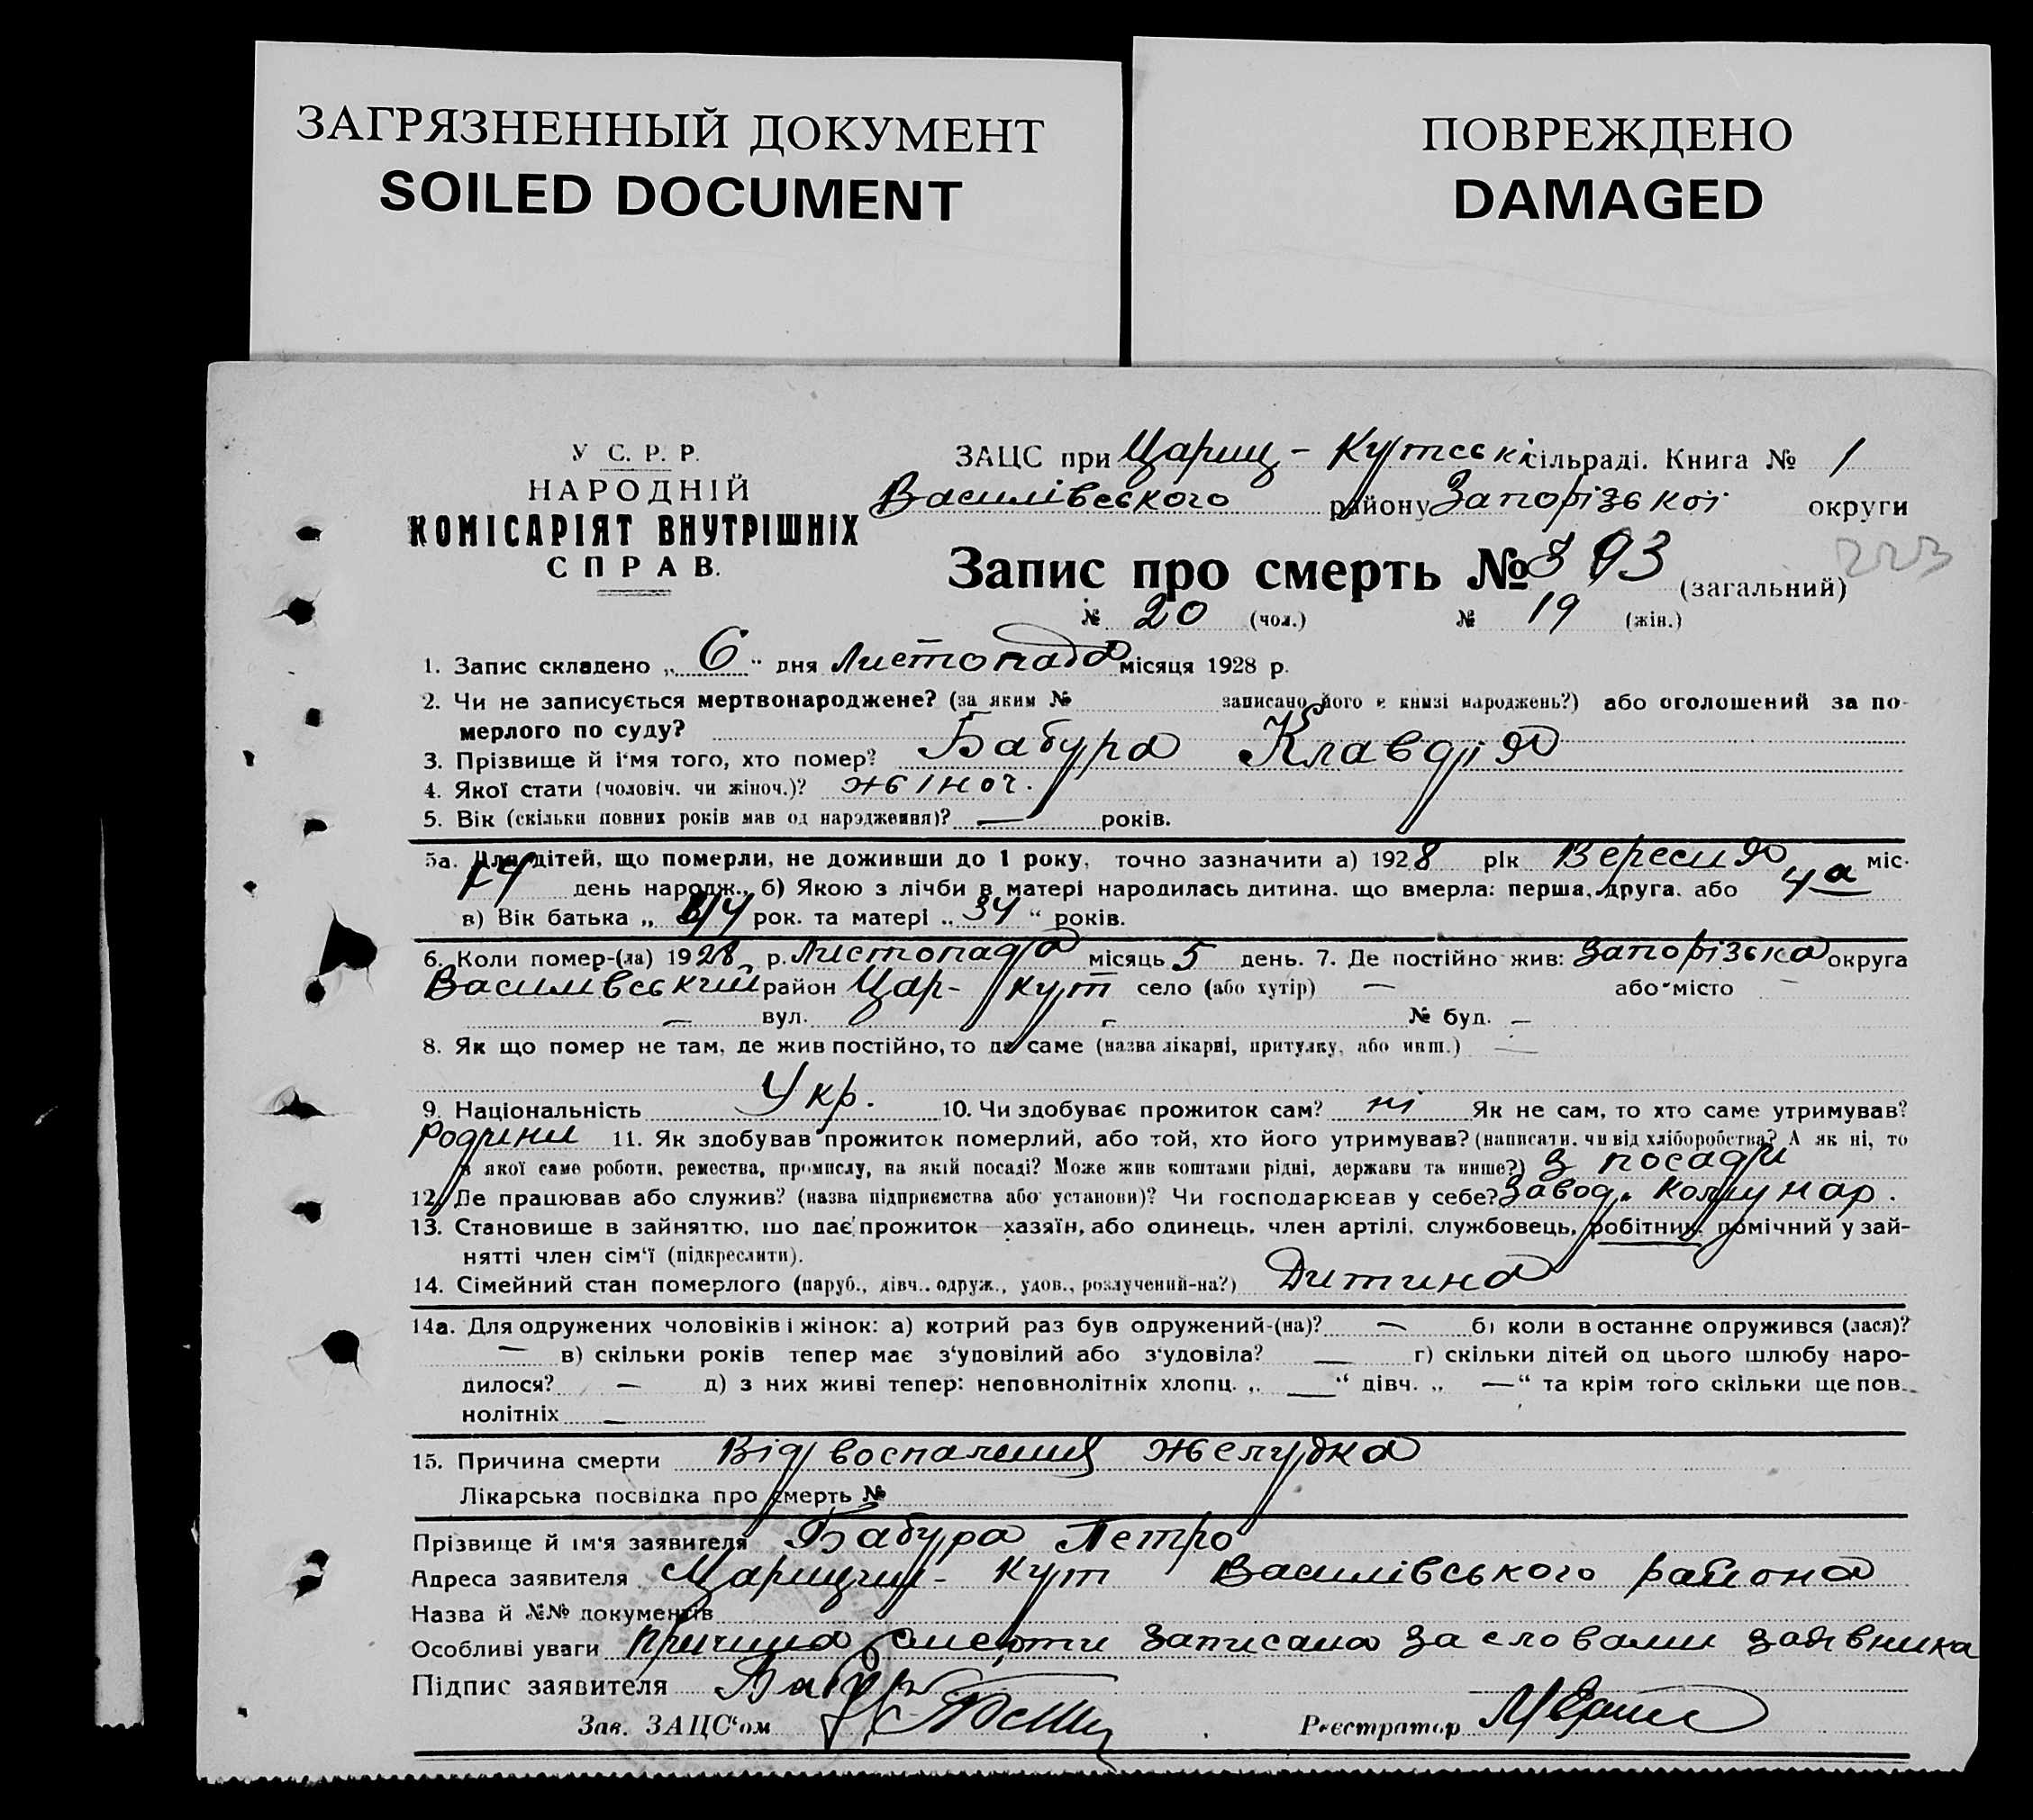 ЗАГРЯЗНЕННЫЙ ДОКУМЕНТ
SOILED DOCUMENT
ПОВРЕЖДЕНО
DAMAGED
У С. Р. Р.
НАРОДНІЙ
КОМІСАРІЯТ ВНУТРІШНІХ
СПРАВ.
ЗАЦС при Цариц-Кутськ сільраді. Книга № 1
Василівського району Запорізької округи
Запис про смерть № (загальний) 223
№ 20 (чол.) № 19 (жін.)
1. Запис складено „ 6 “ дня Листопада місяця 1928 р.
2. Чи не записується мертвонароджене? (за яким № записано його в книзі народжень?) або оголошений за по-
мерлого по суду?
3. Прізвище й ім'я того, хто помер? Бабура Клавдія
4. Якої стати (чоловіч. чи жіноч.)? жіноч.
5. Вік (скільки повних років мав од народження)? — років.
5а. Для дітей, що померли, не доживши до 1 року, точно зазначити а) 1928 рік Вересня міс.
день народж., б) Якою з лічби в матері народилась дитина, що вмерла: перша, друга, або 4а
в) Вік батька „ рок. та матері „ 34 “ років.
6. Коли помер-(ла) 1928 р. Листопада місяць 5 день. 7. Де постійно жив: Запорізька округа
Василівський район Цар-Кут село (або хутір) — або місто —
— вул. — № буд. —
8. Як що помер не там, де жив постійно, то де саме (назва лікарні, притулку, або инш.) —
9. Національність Укр. 10. Чи здобуває прожиток сам? ні Як не сам, то хто саме утримував?
Родини 11. Як здобував прожиток померлий, або той, хто його утримував? (написати, чи від хліборобства? А як ні, то
з якої саме роботи, ремества, промислу, на якій посаді? Може жив коштами рідні, держави та инше?) з посади
12. Де працював або служив? (назва підприємства або установи)? Чи господарював у себе? Завод. Коммунар.
13. Становище в зайняттю, що дає прожиток—хазяїн, або одинець, член артілі, службовець, робітник, помічний у зай-
нятті член сім'ї (підкреслити).
14. Сімейний стан померлого (паруб., дівч., одруж., удов., розлучений-на?) Дитина
14а. Для одружених чоловіків і жінок: а) котрий раз був одружений-(на)? — б) коли в останнє одружився (лася)?
— в) скільки років тепер має з'удовілий або з'удовіла? — г) скільки дітей од цього шлюбу наро-
дилося? — д) з них живі тепер: неповнолітніх хлопц. „ — “ дівч. „ — “ та крім того скільки ще пов-
нолітніх —
15. Причина смерти Від воспаления желудка
Лікарська посвідка про смерть №
Прізвище й ім'я заявителя Бабура Петро
Адреса заявителя Царицин-Кут Василівського района
Назва й №№ документів
Особливі уваги причина смерти записана за словами заявника
Підпис заявителя
Зав. ЗАЦС'ом
Реєстратор